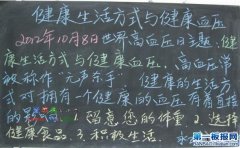 健康生活方式与健康血压
2012年10月8日世界高血压日主题、健
康生活方式与健康血压。、高血压常
被称作“无声杀手” 健康的生活方
式对拥有一个健康的血压有着直接
的影响 1、留意您的体重 2、选择
健康食品。3、积极生活
第一板报网